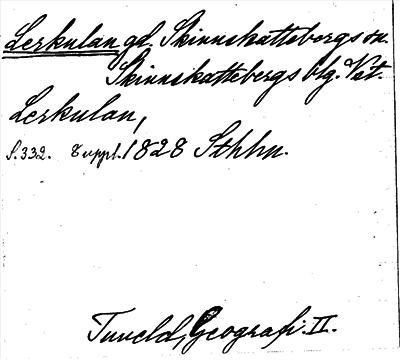 Lerkulan gd. Skinnskattebergs sn.
Skinnskattebergs blg. Vst.
Lerkulan,
S. 332. Suppl. 1828 Sthlm.
Tuneld, Geografi. II.